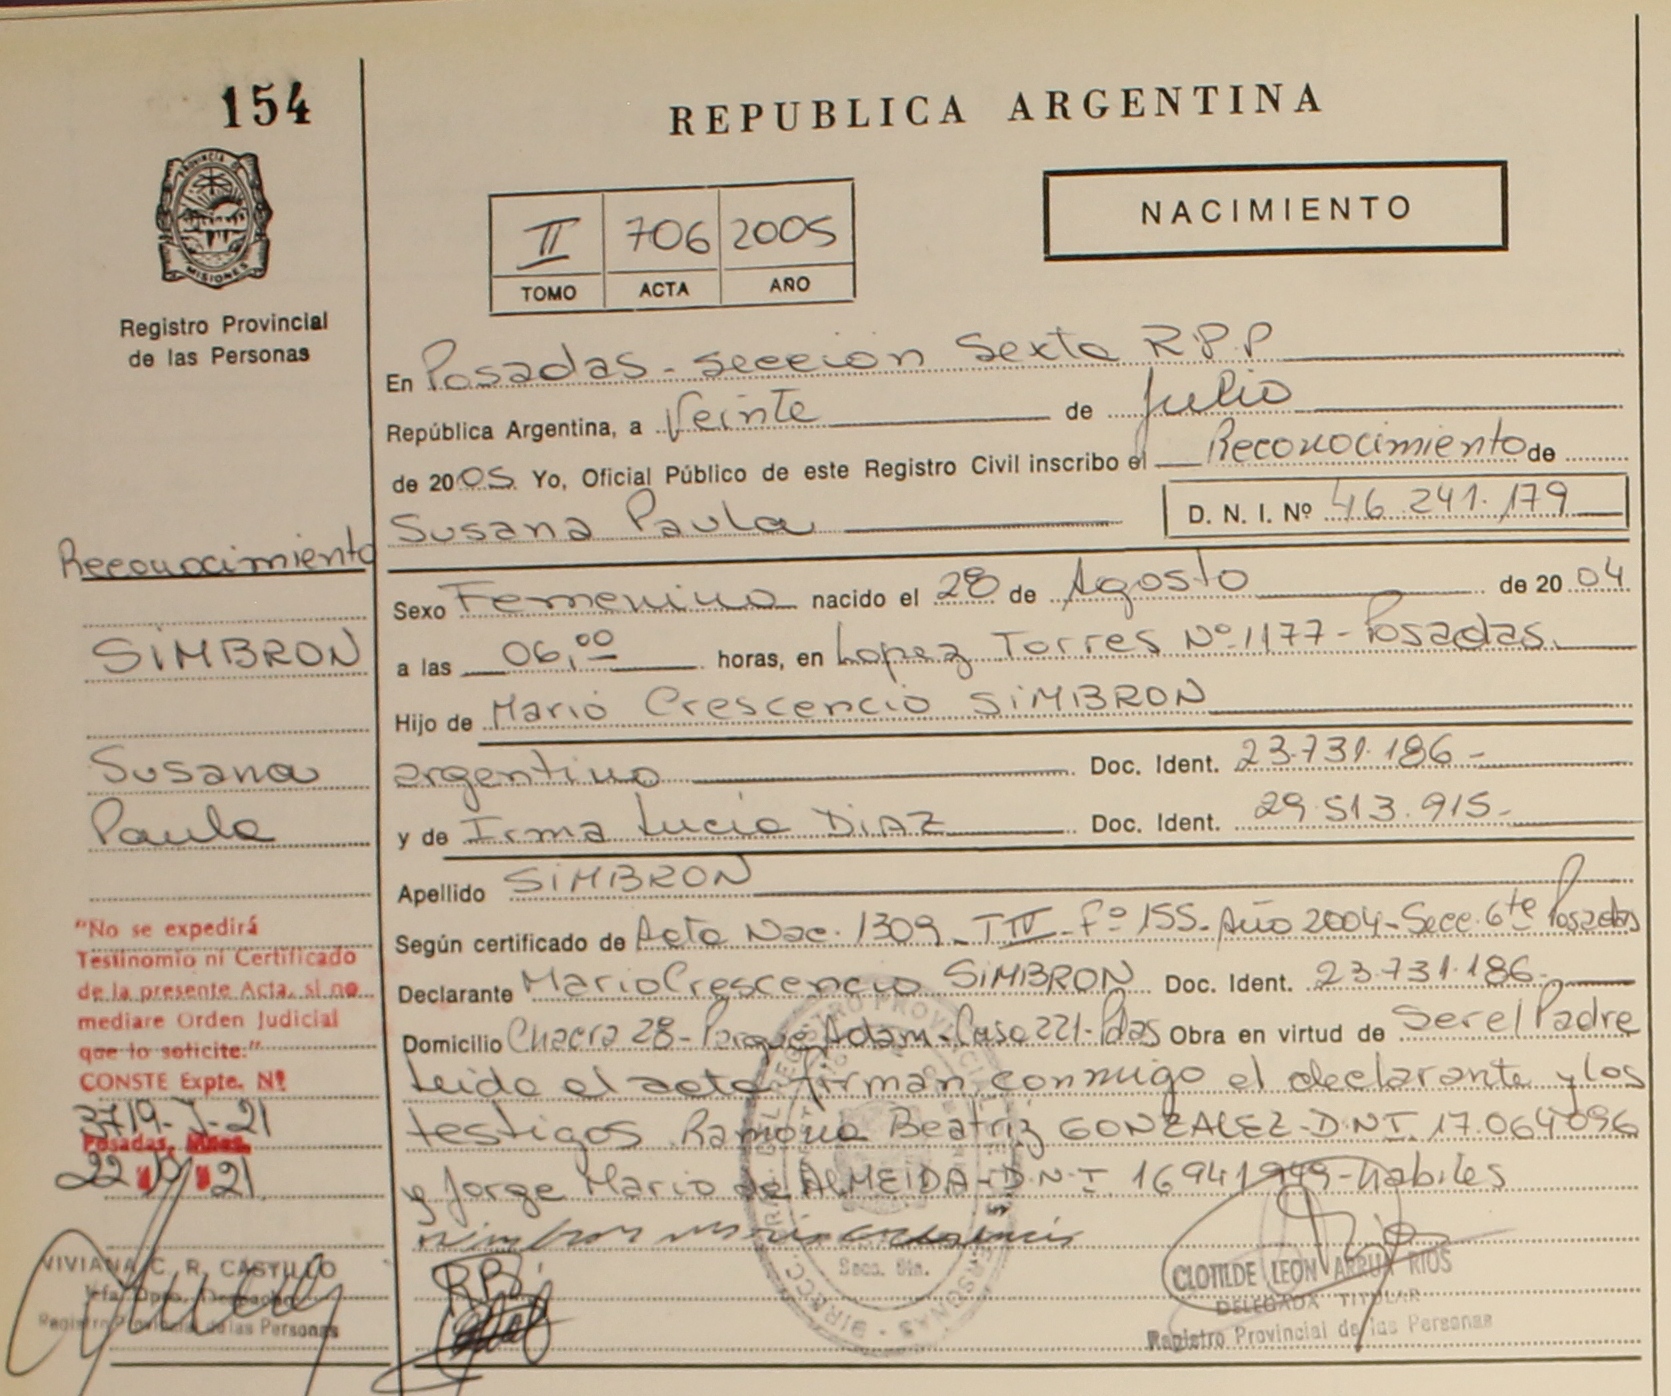 154
REPUBLICA ARGENTINA
PROVINCIA DE
MISIONES
Registro Provincial
de las Personas
II 706 2005
TOMO ACTA AÑO
NACIMIENTO
En Posadas - sección Sexta R.P.P
República Argentina, a Veinte de Julio
de 2005 Yo, Oficial Público de este Registro Civil inscribo el Reconocimiento de
Susana Paula D. N. I. Nº 46.241.179
Reconocimiento
SIMBRON
Susana
Paula
Sexo Femenino nacido el 28 de Agosto de 2004
a las 06,00 horas, en Lopez Torres Nº 1177 - Posadas.
Hijo de Mario Crescencio SIMBRON
argentino Doc. Ident. 23.731.186 -
y de Irma Lucia DIAZ Doc. Ident. 29.513.915 -
Apellido SIMBRON
Según certificado de Acta Nac. 1309 - T IV - Fº 155 - Año 2004 - Secc. 6ta Posadas
Declarante Mario Crescencio SIMBRON Doc. Ident. 23.731.186 -
Domicilio Chacra 28 - Parque Adam - Casa 221 - Pdas Obra en virtud de Ser el Padre
Leida el acta firman conmigo el declarante y los
testigos Ramona Beatriz GONZALEZ - D.N.I. 17.064096
y Jorge Mario de ALMEIDA - D.N.I. 16941949 - habiles
"No se expedirá
Testinomio ni Certificado
de la presente Acta, si no
mediare Orden Judicial
que lo solicite."
CONSTE Expte. Nº
3719-J-21
Posadas, Mnes.
22 21
VIVIANA C. R. CASTILLO
Jefa Dpto. Despacho
Registro Provincial de las Personas
RBG
Secc. 6ta.
CLOTILDE LEON ARRUA RIOS
DELEGADA TITULAR
Registro Provincial de las Personas